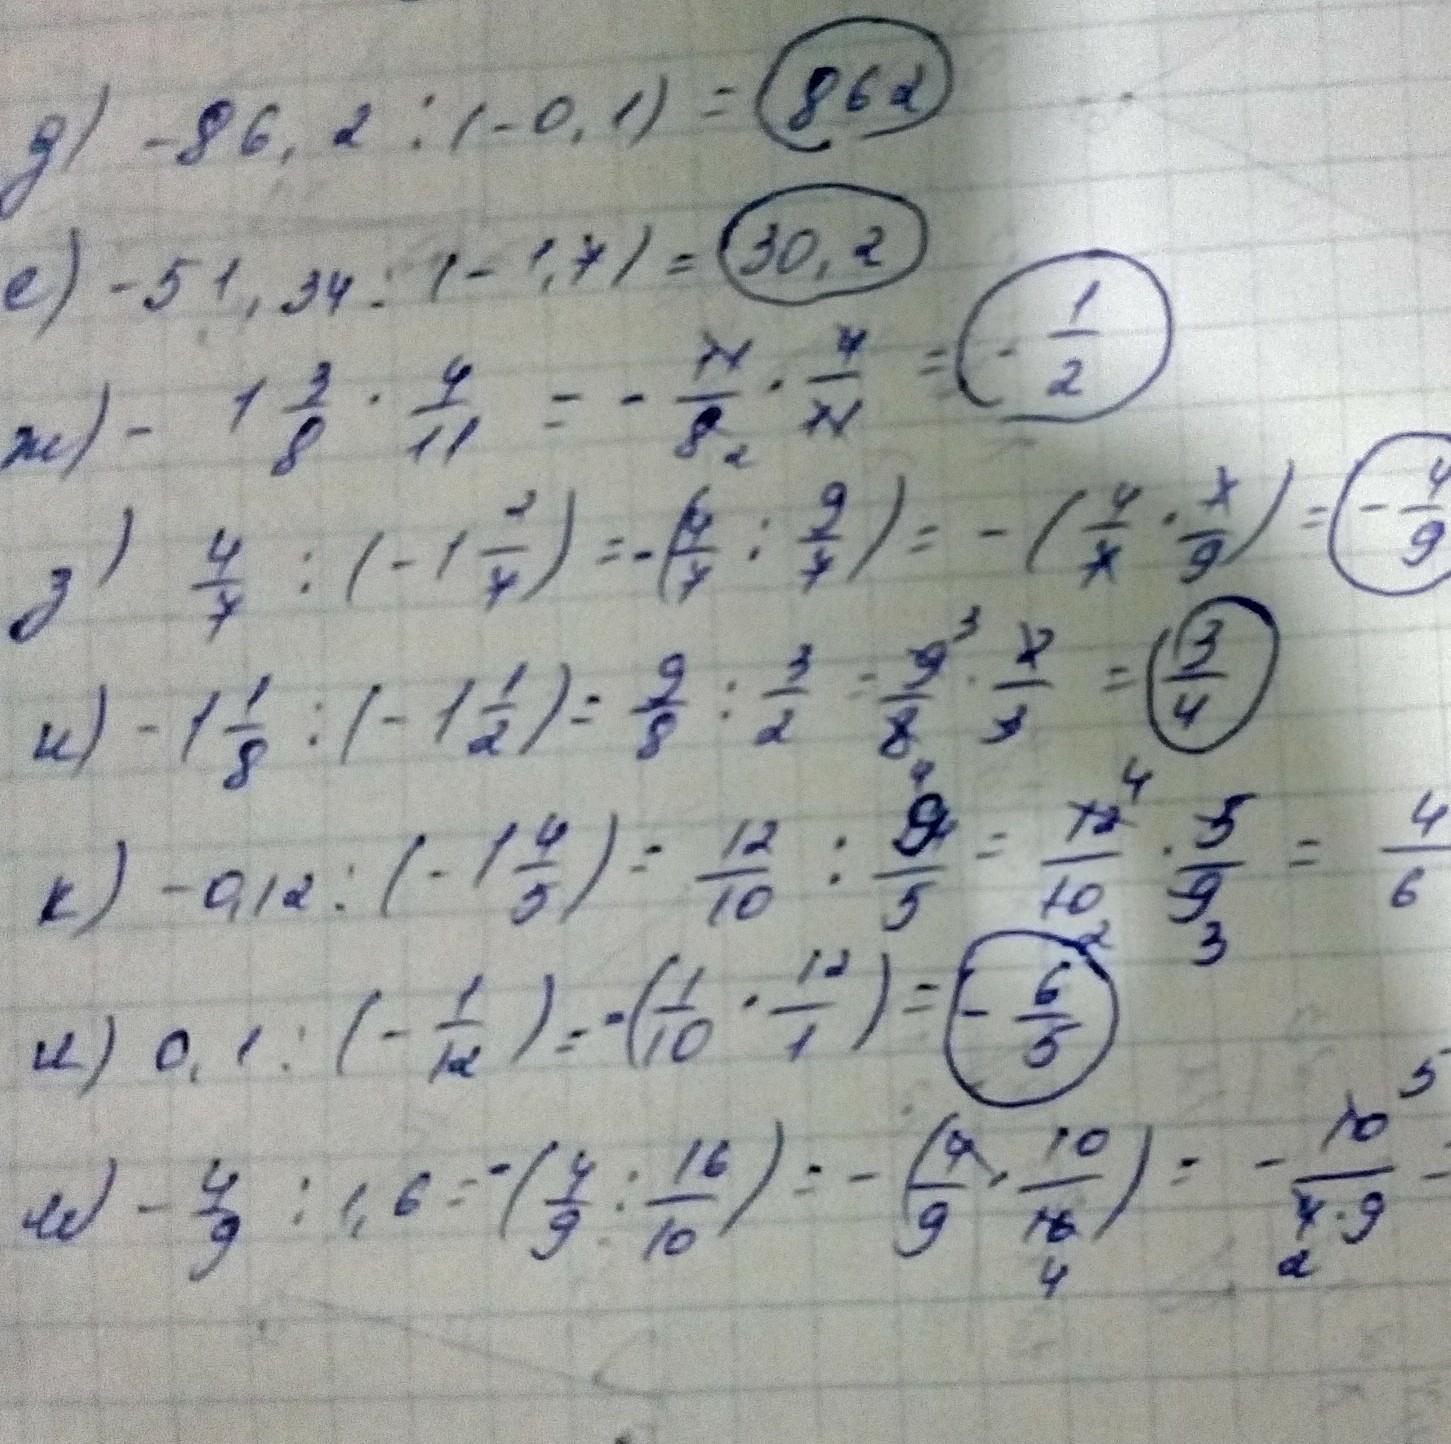 д) -86,2 : (-0,1) = 862
е) -51,34 : (-1,7) = 30,2
ж) - 1 3/8 · 4/11 = - 11/8 2 · 4/11 = - 1/2
з) 4/7 : (-1 2/7) = -(4/7 : 9/7) = -(4/7 · 7/9) = - 4/9
и) -1 1/8 : (-1 1/2) = 9/8 : 3/2 = 9 3/8 4 · 2/3 = 3/4
к) -0,12 : (-1 4/5) = 12/10 : 9/5 = 12 4/10 2 · 5/9 3 = 4/6
л) 0,1 : (- 1/12) = -(1/10 · 12/1) = - 6/5
м) - 4/9 : 1,6 = -(4/9 : 16/10) = -(4/9 · 10/16 4) = - 10 5/4·9 2 =